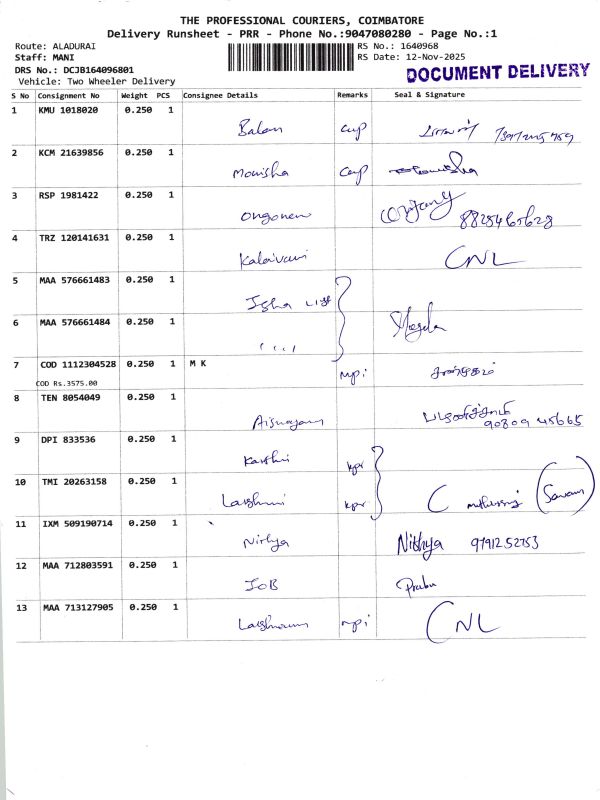 THE PROFESSIONAL COURIERS, COIMBATORE
Delivery Runsheet - PRR - Phone No.:9047080280 - Page No.:1
Route: ALADURAI
RS No.: 1640968
Staff: MANI
RS Date: 12-Nov-2025
DRS No.: DCJB164096801
DOCUMENT DELIVERY
Vehicle: Two Wheeler Delivery
S No Consignment No Weight PCS Consignee Details Remarks Seal & Signature
1 KMU 1018020 0.250 1
Balan
2 KCM 21639856 0.250 1
Monisha
3 RSP 1981422 0.250 1
8825465628
4 TRZ 120141631 0.250 1
Kalaivani CNL
5 MAA 576661483 0.250 1
6 MAA 576661484 0.250 1
7 COD 1112304528 0.250 1 M K
COD Rs.3575.00
8 TEN 8054049 0.250 1
90809 45665
9 DPI 833536 0.250 1
10 TMI 20263158 0.250 1
11 IXM 509190714 0.250 1
Nithya Nithya 9791252753
12 MAA 712803591 0.250 1
IOB Prabu
13 MAA 713127905 0.250 1
CNL